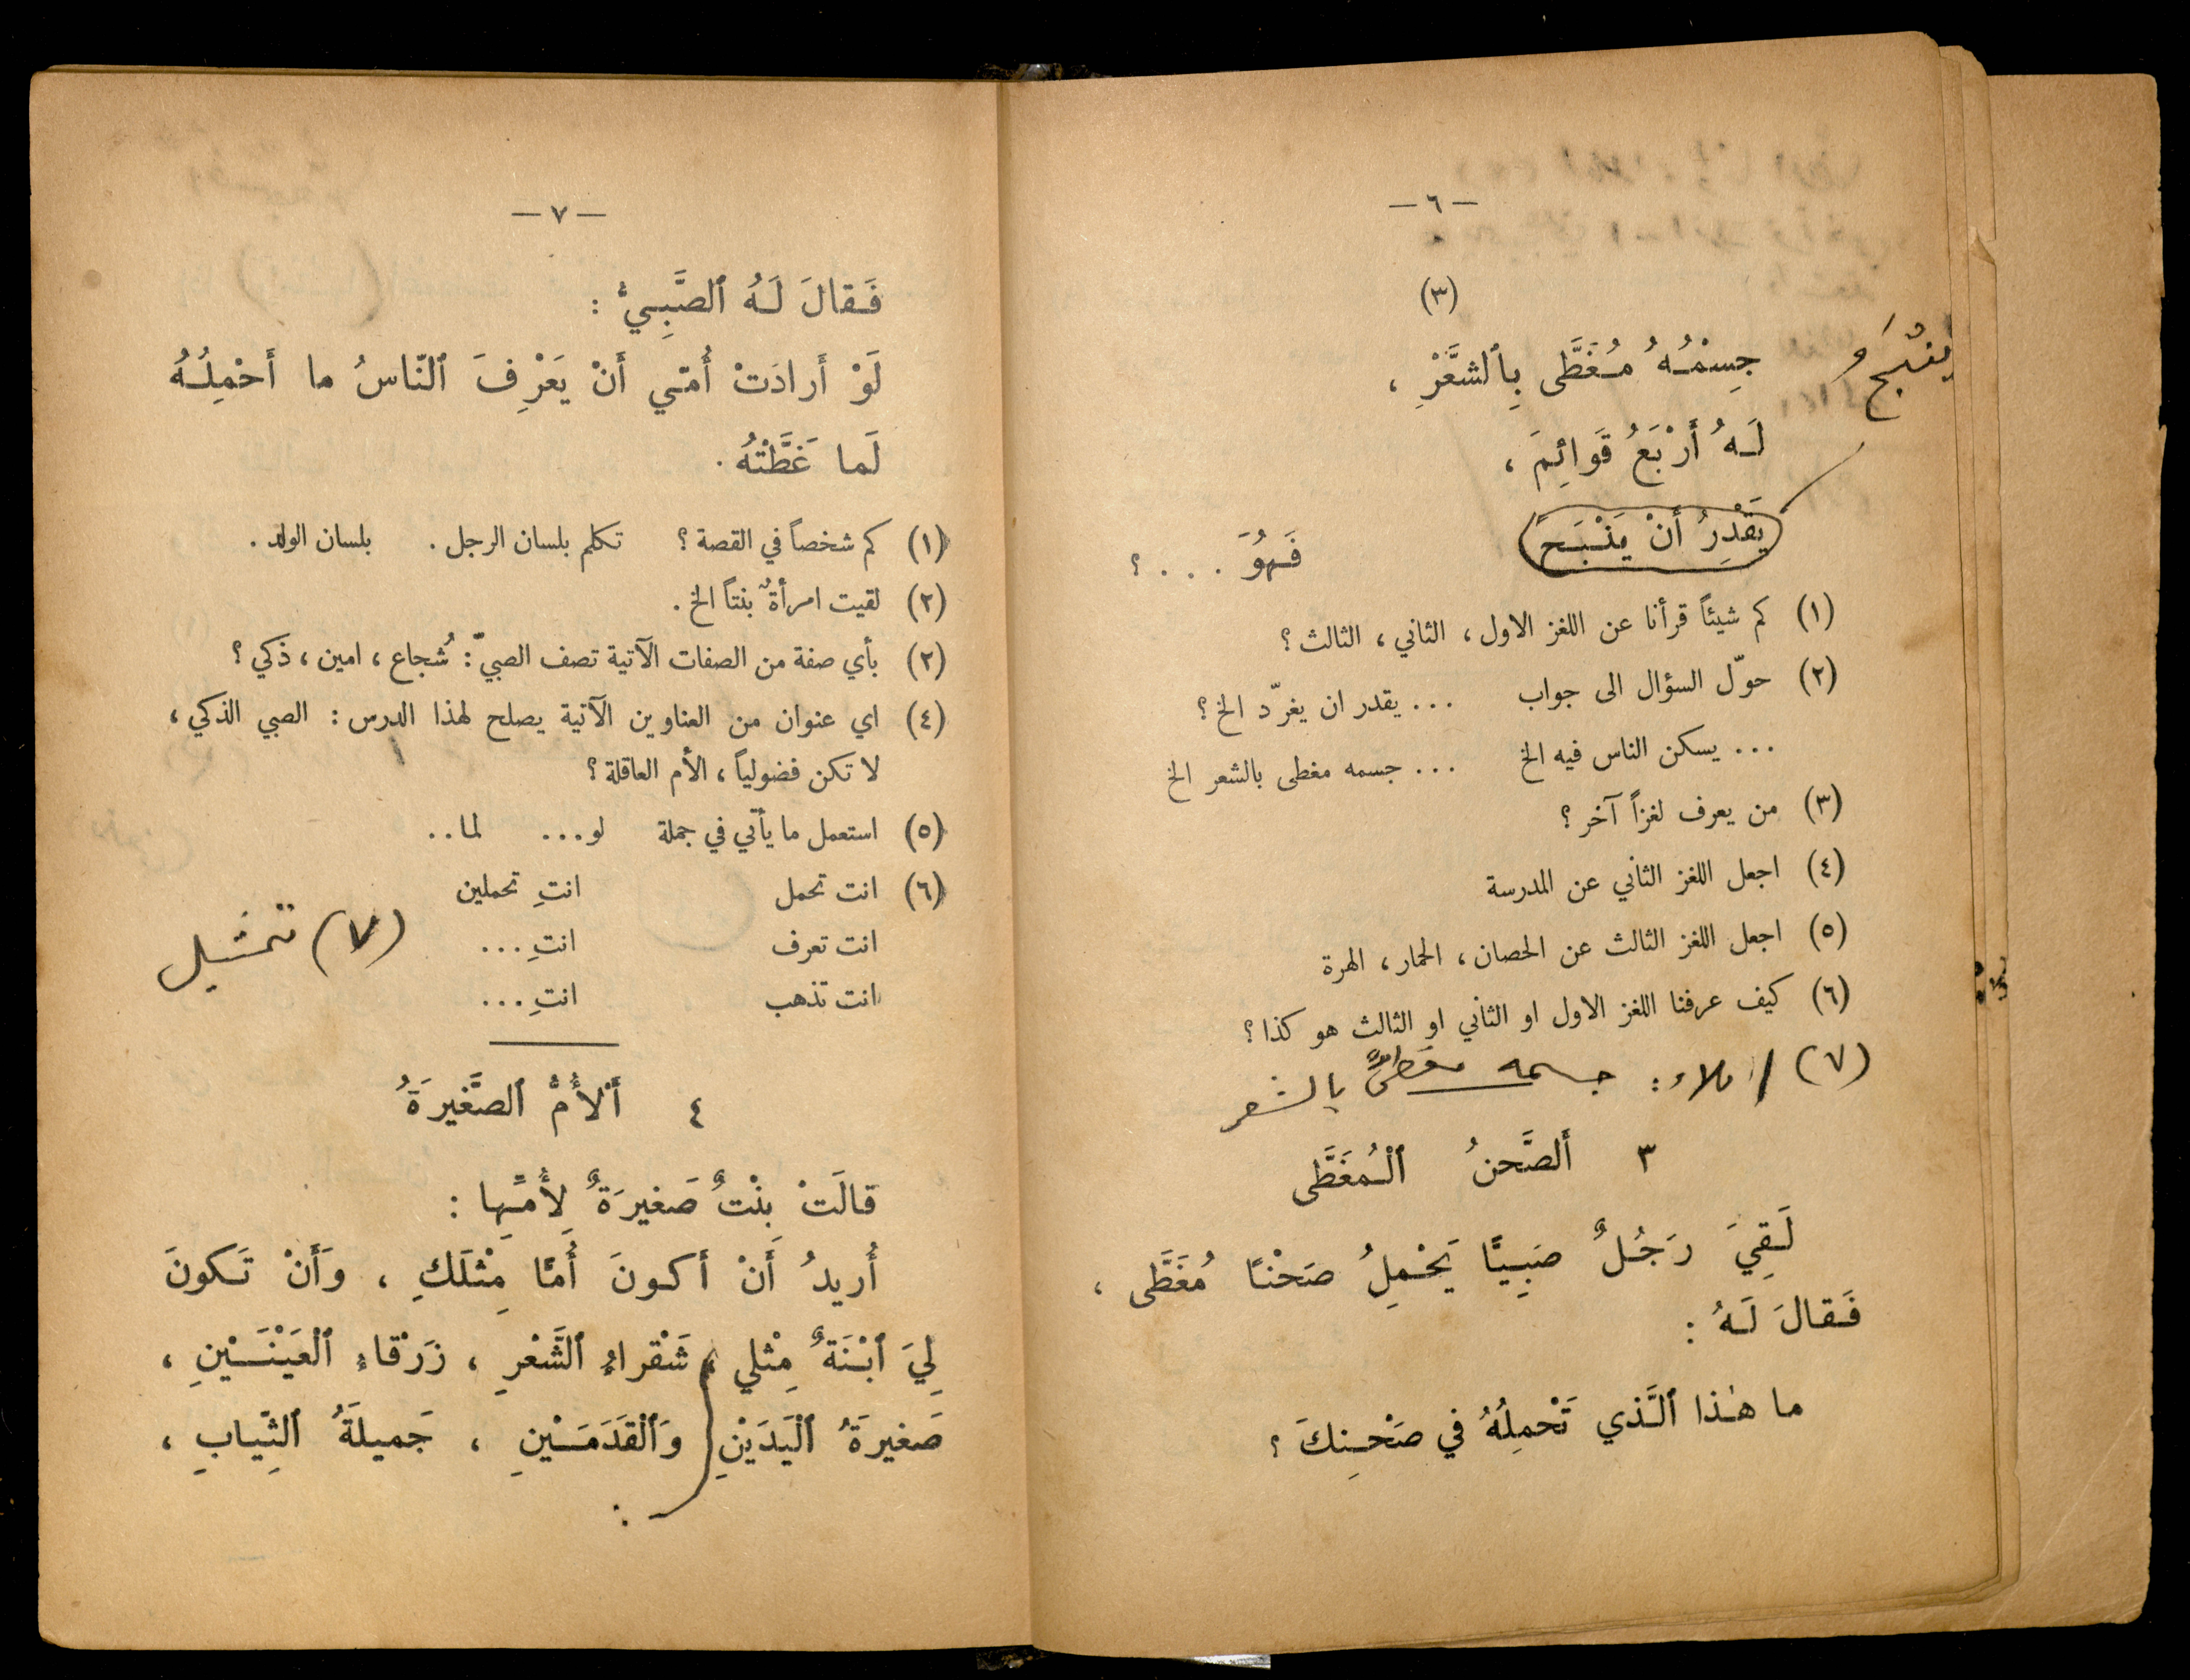 — ٦ —
(٣)
جِسْمُهُ مُغَطَّى بِٱلشَّعْرِ ،
يَنْبَحُ
لَهُ أَرْبَعُ قَوَائِمَ ،
يَقْدِرُ أَنْ يَنْبَحَ فَهُوَ . . . ؟
(١) كم شيئاً قرأنا عن اللغز الاول ، الثاني ، الثالث ؟
(٢) حوّل السؤال الى جواب ... يقدر ان يغرّد الخ ؟
... يسكن الناس فيه الخ ... جسمه مغطى بالشعر الخ
(٣) من يعرف لغزاً آخر ؟
(٤) اجعل اللغز الثاني عن المدرسة
(٥) اجعل اللغز الثالث عن الحصان ، الحمار ، الهرة
(٦) كيف عرفنا اللغز الاول او الثاني او الثالث هو كذا ؟
(٧) املاء : جسمه مغطىً بالشعر
٣ أَلصَّحنُ ٱلْمُغَطَّى
لَقِيَ رَجُلٌ صَبِيًّا يَحْمِلُ صَحْنًا مُغَطَّى ،
فَقالَ لَهُ :
ما هٰذا ٱلَّذي تَحْمِلُهُ في صَحْنِكَ ؟
— ٧ —
فَقالَ لَهُ ٱلصَّبِيُّ :
لَوْ أَرادَتْ أُمّي أَنْ يَعْرِفَ ٱلنّاسُ ما أَحْمِلُهُ
لَما غَطَّتْهُ .
(١) كم شخصاً في القصة ؟ تكلم بلسان الرجل . بلسان الولد .
(٢) لقيت امرأةٌ بنتاً الخ .
(٢) بأي صفة من الصفات الآتية تصف الصبيّ : شُجاع ، امين ، ذكي ؟
(٤) اي عنوان من العناوين الآتية يصلح لهذا الدرس : الصبي الذكي ،
لا تكن فضولياً ، الأم العاقلة ؟
(٥) استعمل ما يأتي في جملة لو... لما..
(٦) انت تحمل انتِ تحملين
انت تعرف انتِ ...
(٧) تمثيل
انت تذهب انتِ ...
٤ أَلْأُمُّ ٱلصَّغيرَةُ
قالَتْ بِنْتٌ صَغيرَةٌ لِأُمِّها :
أُريدُ أَنْ أَكونَ أُمًّا مِثْلَكِ ، وَأَنْ تَكونَ
لِيَ ٱبْنَةٌ مِثْلي ، شَقْراءُ ٱلشَّعْرِ ، زَرْقاءُ ٱلْعَيْنَيْنِ ،
صَغيرَةُ ٱلْيَدَيْنِ وَٱلْقَدَمَيْنِ ، جَميلَةُ ٱلثِّيابِ ،